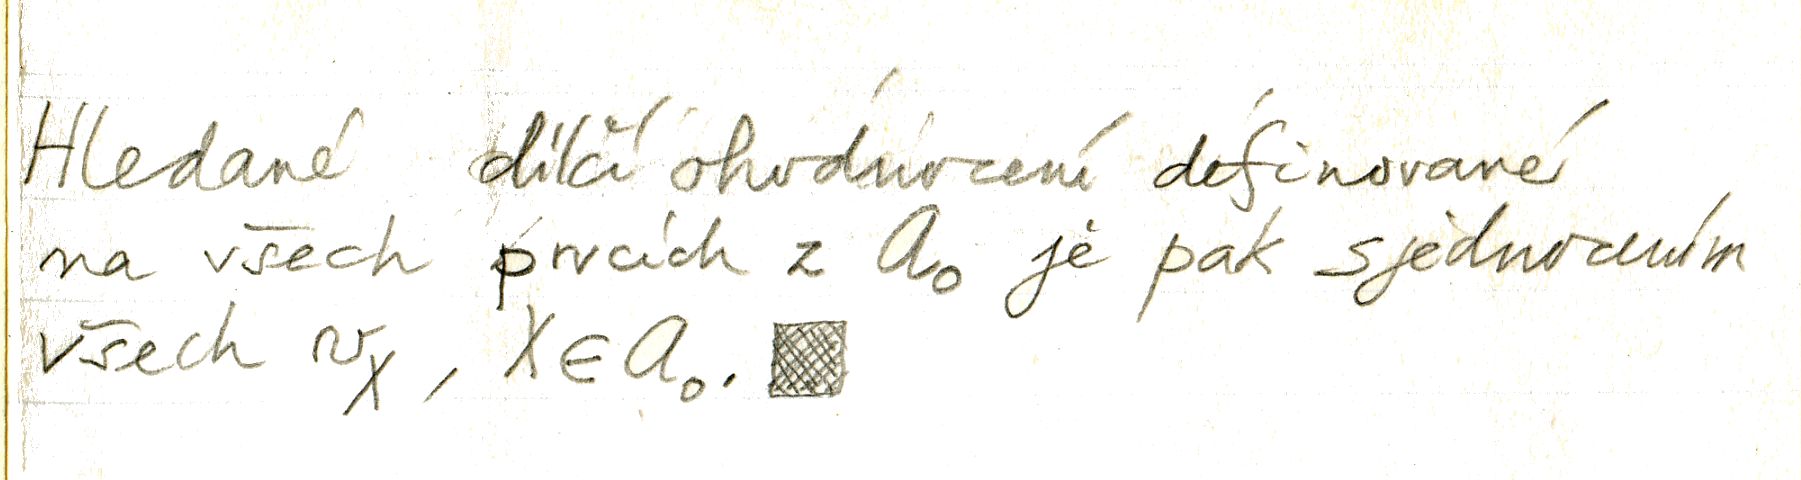 Hledané dílčí ohodnocení definované
na všech prvcích z a₀ je pak sjednocením
všech v_X, X ∈ a₀. ▩